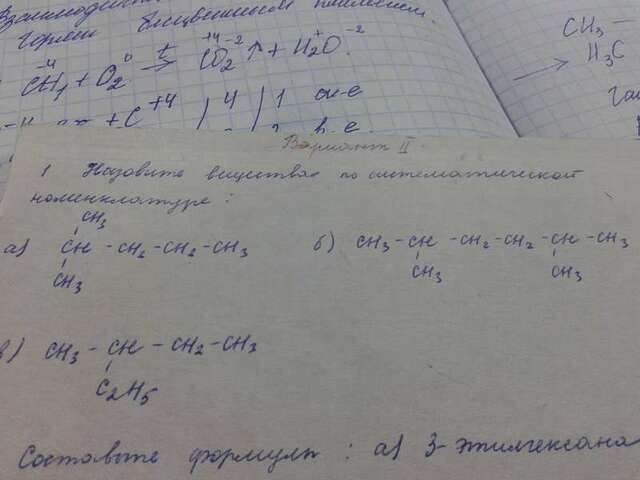 горит бесцветным пламенем.
CH₄⁻⁴ + O₂⁰ →ᵗ CO₂⁺⁴⁻² ↑ + H₂⁺O⁻²
C⁺⁴ | 4 | 1 ок-е
в-е.
CH₃ –
H₃C
Вариант II.
1 Назовите вещества по систематической
номенклатуре:
CH₃
а) CH – CH₂ – CH₂ – CH₃
CH₃
б) CH₃ – CH – CH₂ – CH₂ – CH – CH₃
CH₃ CH₃
в) CH₃ – CH – CH₂ – CH₃
C₂H₅
Составьте формулы: а) 3-этилгексана